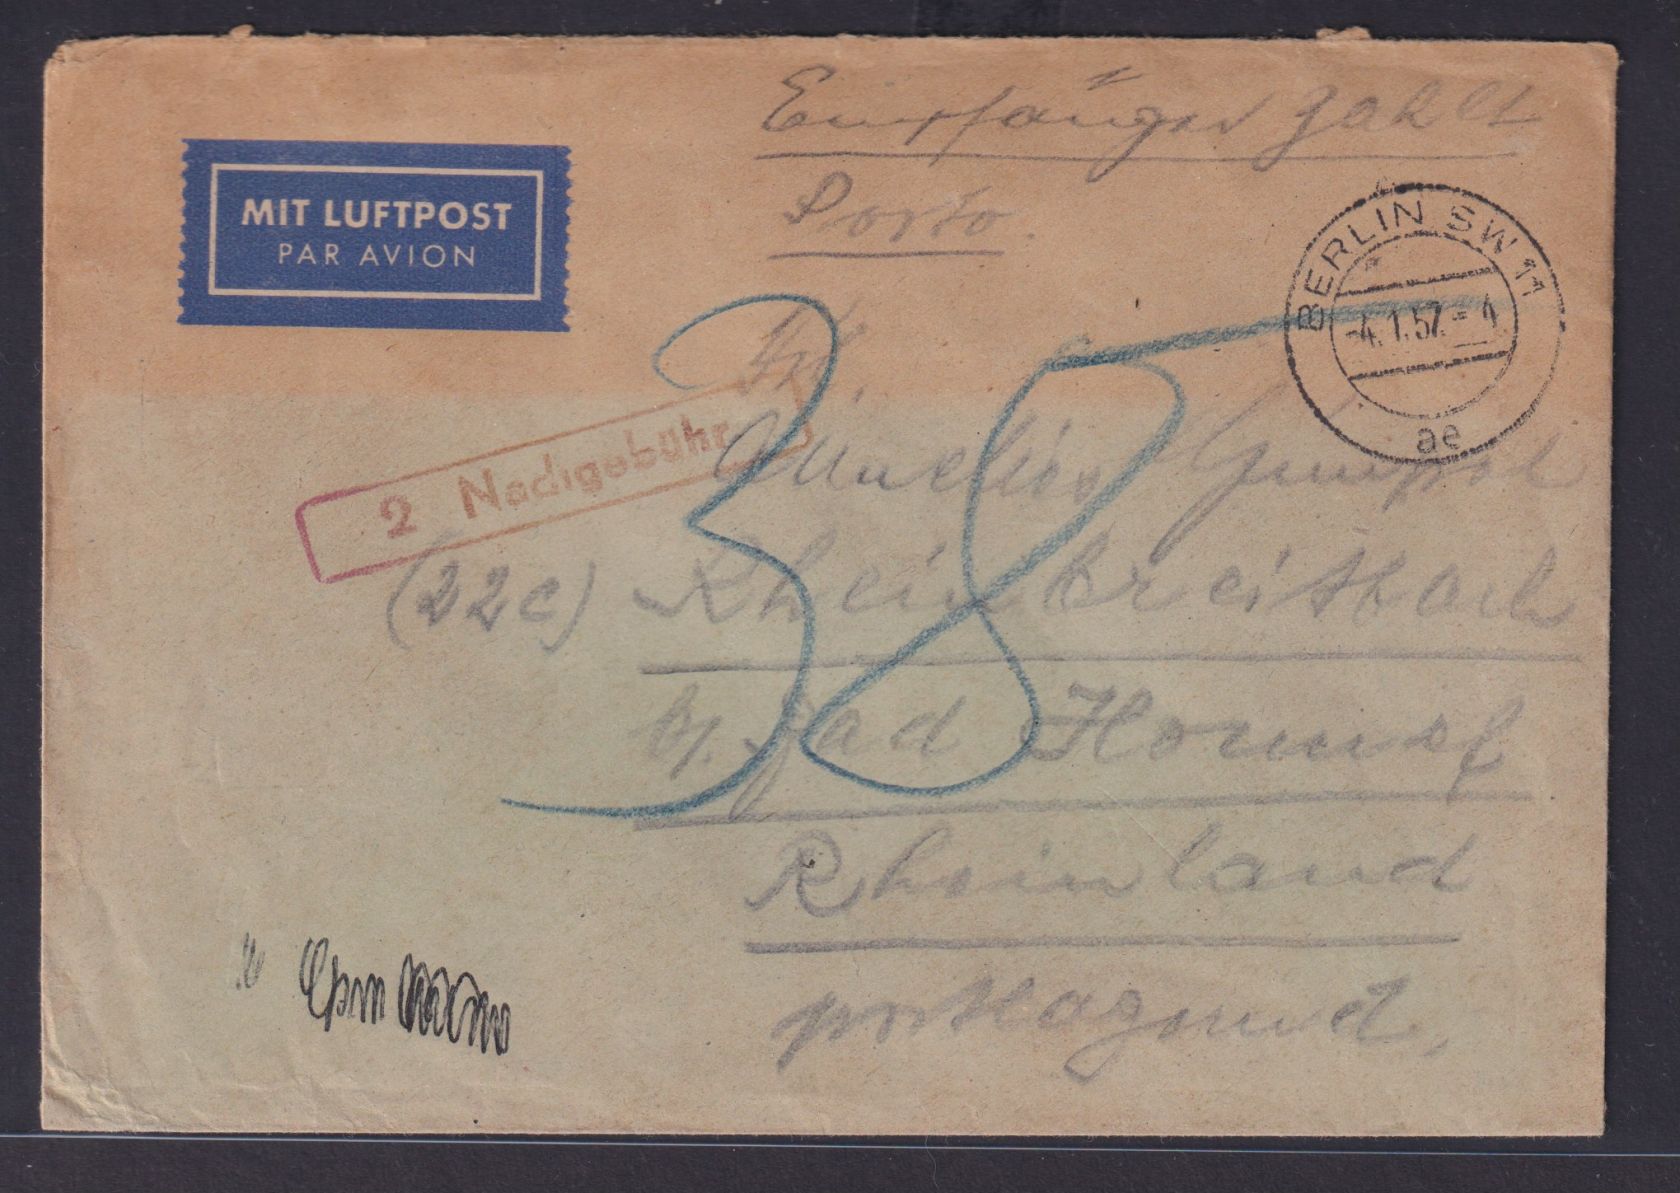 Empfänger zahlt
Porto.
MIT LUFTPOST
PAR AVION
BERLIN SW 11
-4.1.57.-4
ae
38
2 Nachgebühr
(22c) Rheinbreitbach
b/. Bad Honnef
Rheinland
postlagernd.